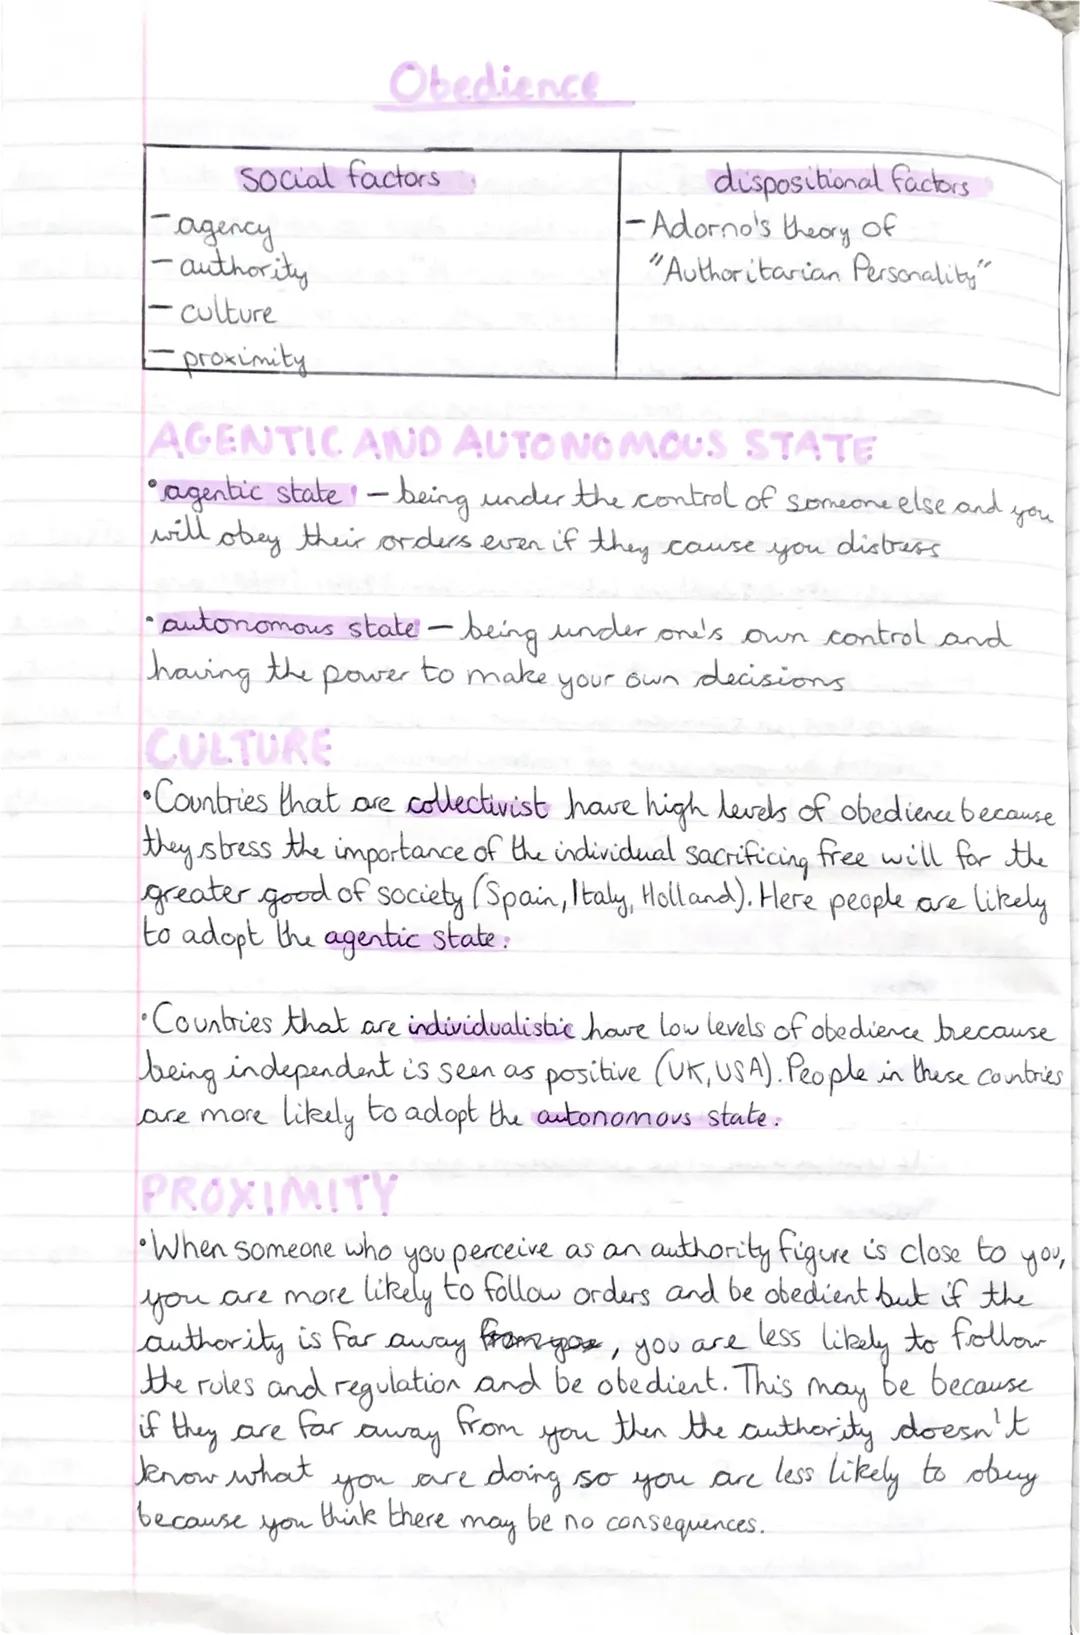 Obedience
social factors
dispositional factors
- agency
- authority
- culture
- proximity
- Adorno's theory of
"Authoritarian Personality"
AGENTIC AND AUTONOMOUS STATE
• agentic state - being under the control of someone else and you
will obey their orders even if they cause you distress
• autonomous state - being under one's own control and
having the power to make your own decisions
CULTURE
• Countries that are collectivist have high levels of obedience because
they stress the importance of the individual sacrificing free will for the
greater good of society (Spain, Italy, Holland). Here people are likely
to adopt the agentic state.
• Countries that are individualistic have low levels of obedience because
being independent is seen as positive (UK, USA). People in these countries
are more likely to adopt the autonomous state.
PROXIMITY
• When someone who you perceive as an authority figure is close to you,
you are more likely to follow orders and be obedient but if the
authority is far away from you, you are less likely to follow
the rules and regulation and be obedient. This may be because
if they are far away from you then the authority doesn't
know what you are doing so you are less likely to obey
because you think there may be no consequences.